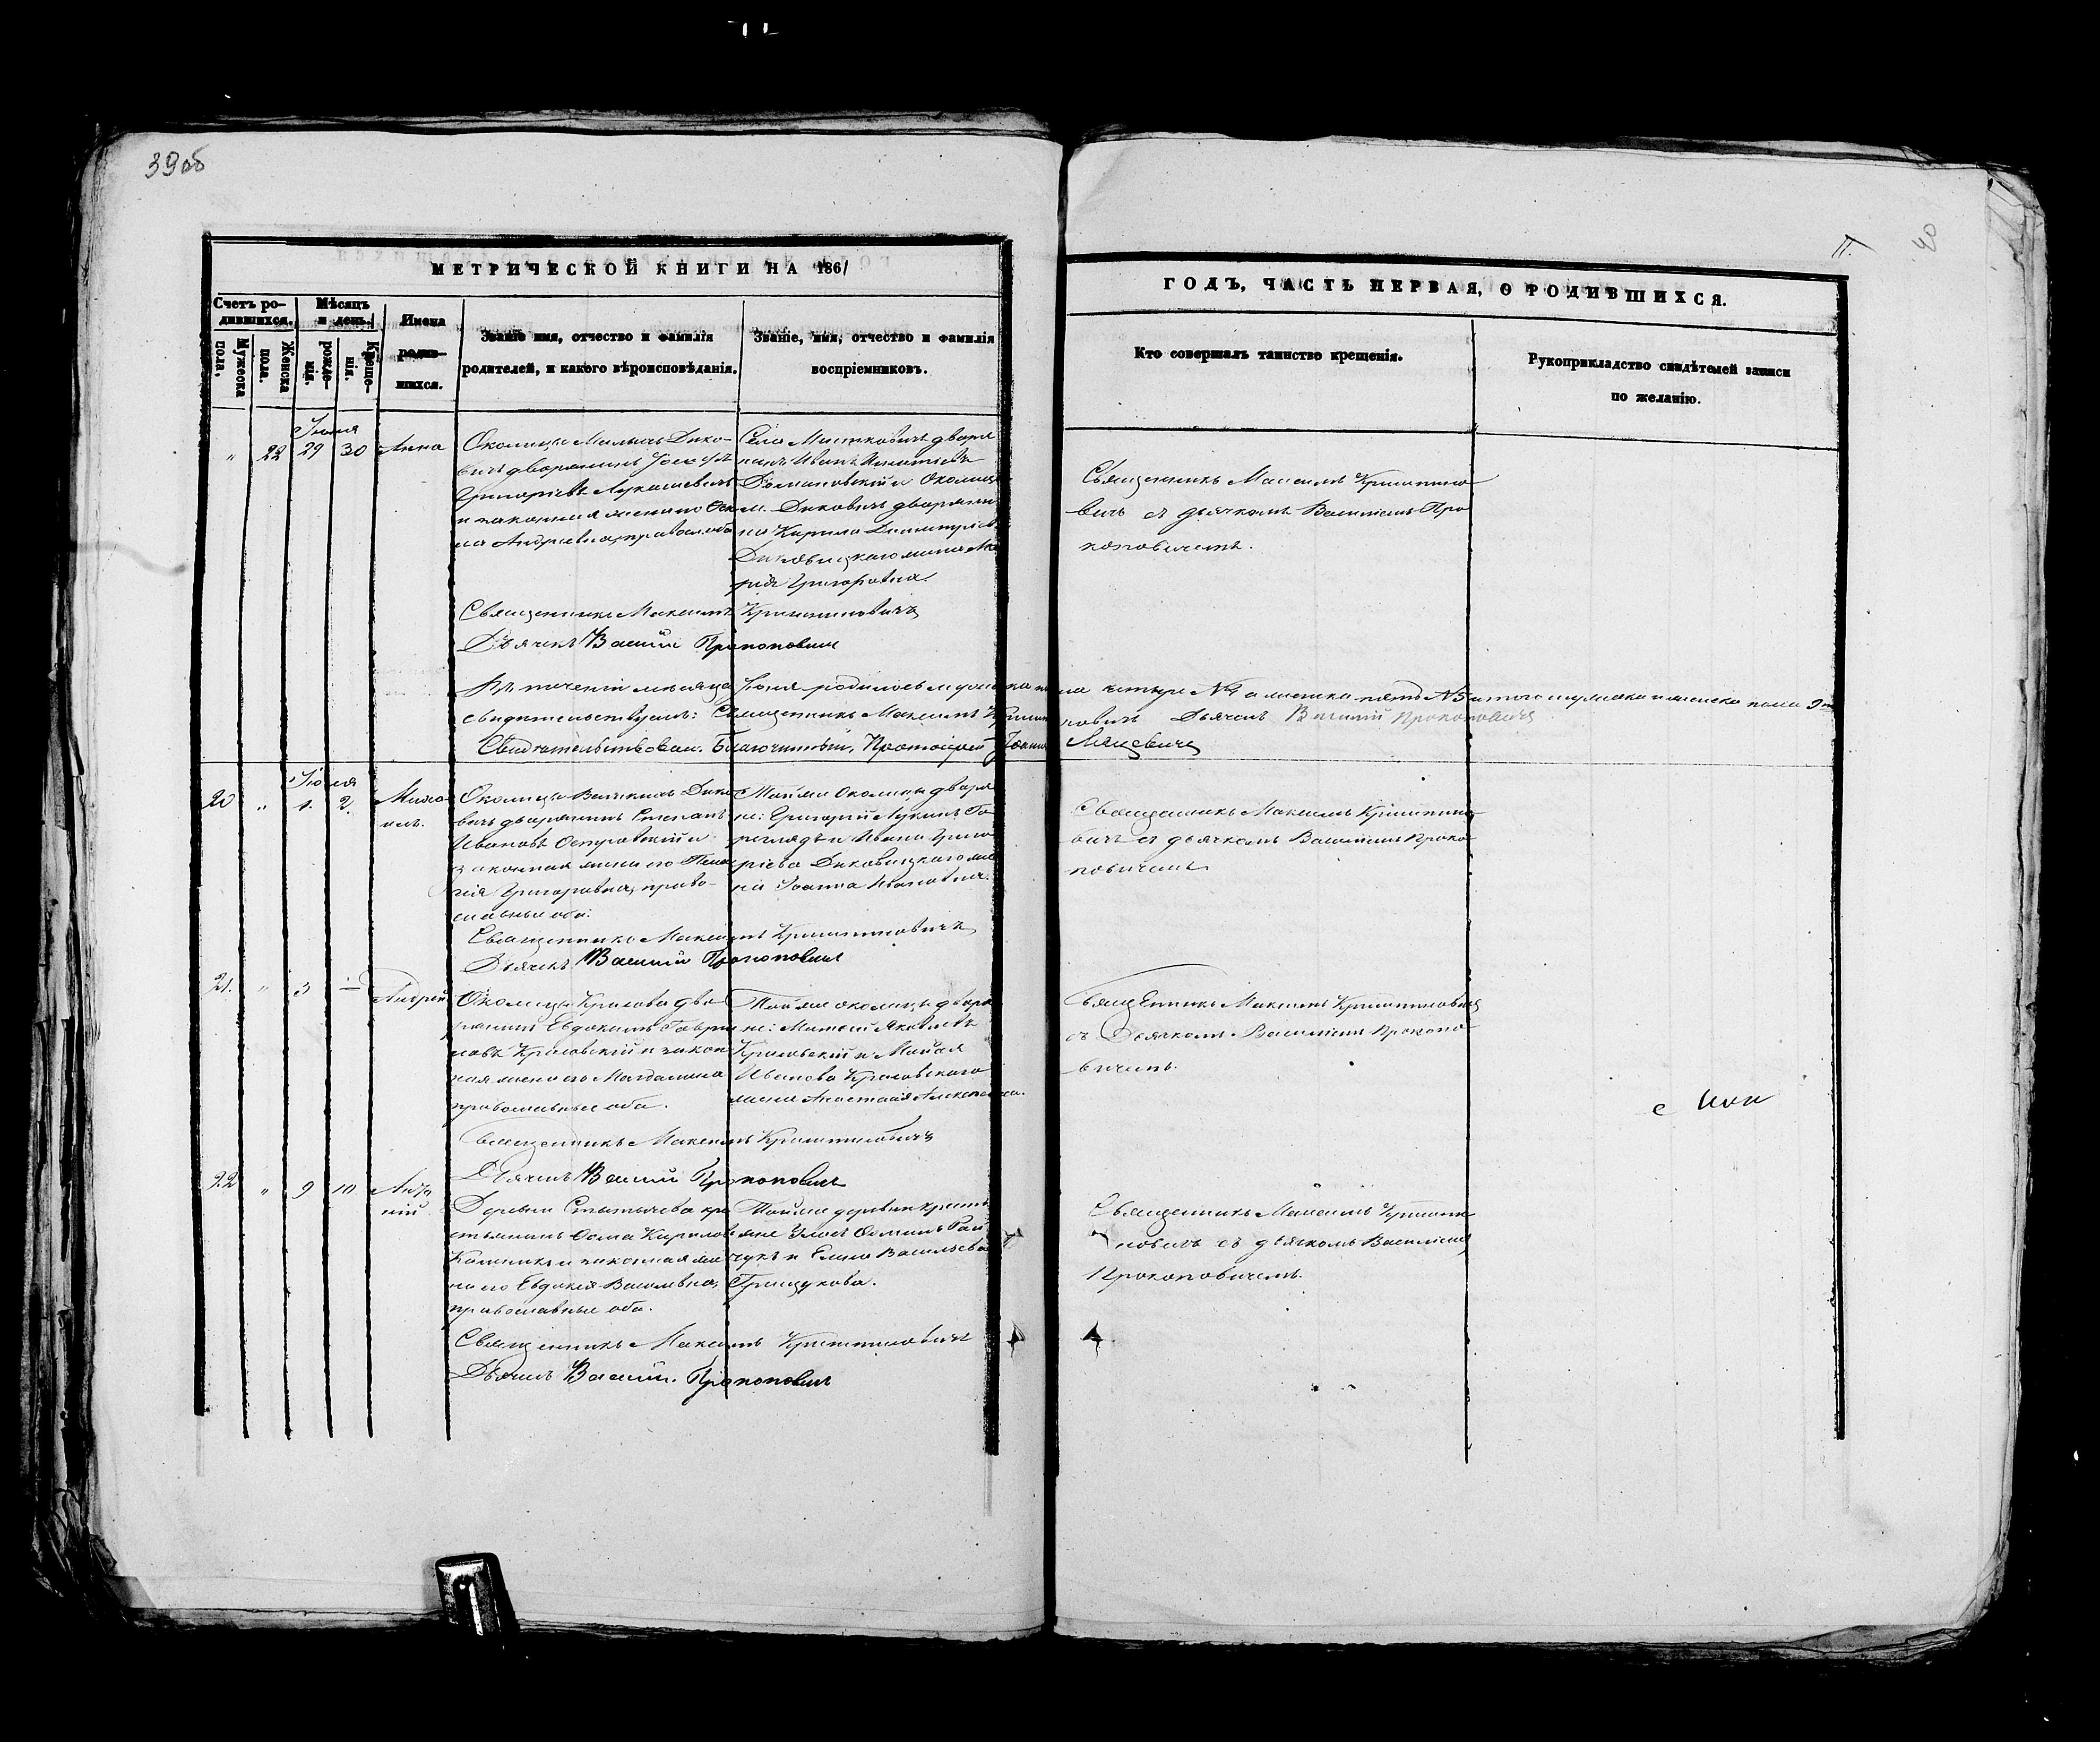 39об
40
11.
МЕТРИЧЕСКОЙ КНИГИ НА 1861
ГОДЪ, ЧАСТЬ ПЕРВАЯ, О РОДИВШИХСЯ.
Счетъ ро-
дившихся.
Мужеска
пола,
Женска
пола.
Мѣсяцъ
и день.
рожде-
нія.
Креще-
нія.
Имена
родив-
шихся.
Званіе имя, отчество и фамилія
родителей, и какого вѣроисповѣданія.
Званіе, имя, отчество и фамилія
воспріемниковъ.
Кто совершалъ таинство крещенія.
Рукоприкладство свидѣтелей записи
по желанію.
Іюня
" 22 29 30 Анна
Околицы Малыхъ Дико-
вичъ дворянинъ
Григорьевъ Лукашевичъ
и законная жена его
на Андреевна, православ. оба
Села дворя
нинъ Иванъ Игнатьевъ
Домановскій и Околицы
м. Диковичъ дворяни
на Кирила Димитріев
Диковицкаго жена Ма
рія Григорьевна.
Священникъ Максимъ
вичъ съ дьячкомъ Василіемъ Про
коповичемъ.
Священникъ Максимъ
Дьячекъ Василій Прокоповичъ
Въ теченіи мѣсяца Іюня родилось мужеска пола четыре №4 а женска пять №5 итого мужеска и женска пола 9ть
свидѣтельствуемъ: Священникъ Максимъ Дьячекъ Василій Прокоповичъ
Свидѣтельствовалъ Благочинный, Протоіерей
Іюля
20 " 1. 2. Миха
илъ.
Околицы Великихъ Дико
вичъ дворянинъ Степанъ
Ивановъ Островскій и
законная жена его Пела
гія Григорьевна, право-
славные оба.
Той же Околицы дворя
не: Григорій Лукинъ
и Ивана Григо
рьева Диковицкаго же
на Іоанна Ивановна.
Священникъ Максимъ
вичъ съ дьячкомъ Василіемъ Проко
повичемъ
Священникъ Максимъ
Дьячекъ Василій Прокоповичъ
21. " 3 — Андрей
Околицы Крысова дво
рянинъ Евдокимъ Гаври
ловъ Крысовскій и закон
ная жена его Магдалина
православные оба.
Той же околицы дворя
не: Матвій Яковлевъ
Крысовскій и
Иванова Крысовскаго
жена Анастасія
Священникъ Максимъ
съ Дьячкомъ Василіемъ Прокопо
вичемъ.
Священникъ Максимъ
Дьячекъ Василій Прокоповичъ
22 " 9 10 Анто
ній
Деревни Стытычева кре
стьянинъ Ѳома Кирилов
и законная же
на его Евдокія Васильевна,
православные оба.
Той же деревни кресть
яне
и Елена Васильева
Грицукова.
Священникъ Максимъ
новичъ съ дьячкомъ Василіемъ
Прокоповичемъ.
Священникъ Максимъ
Дьячекъ Василій Прокоповичъ